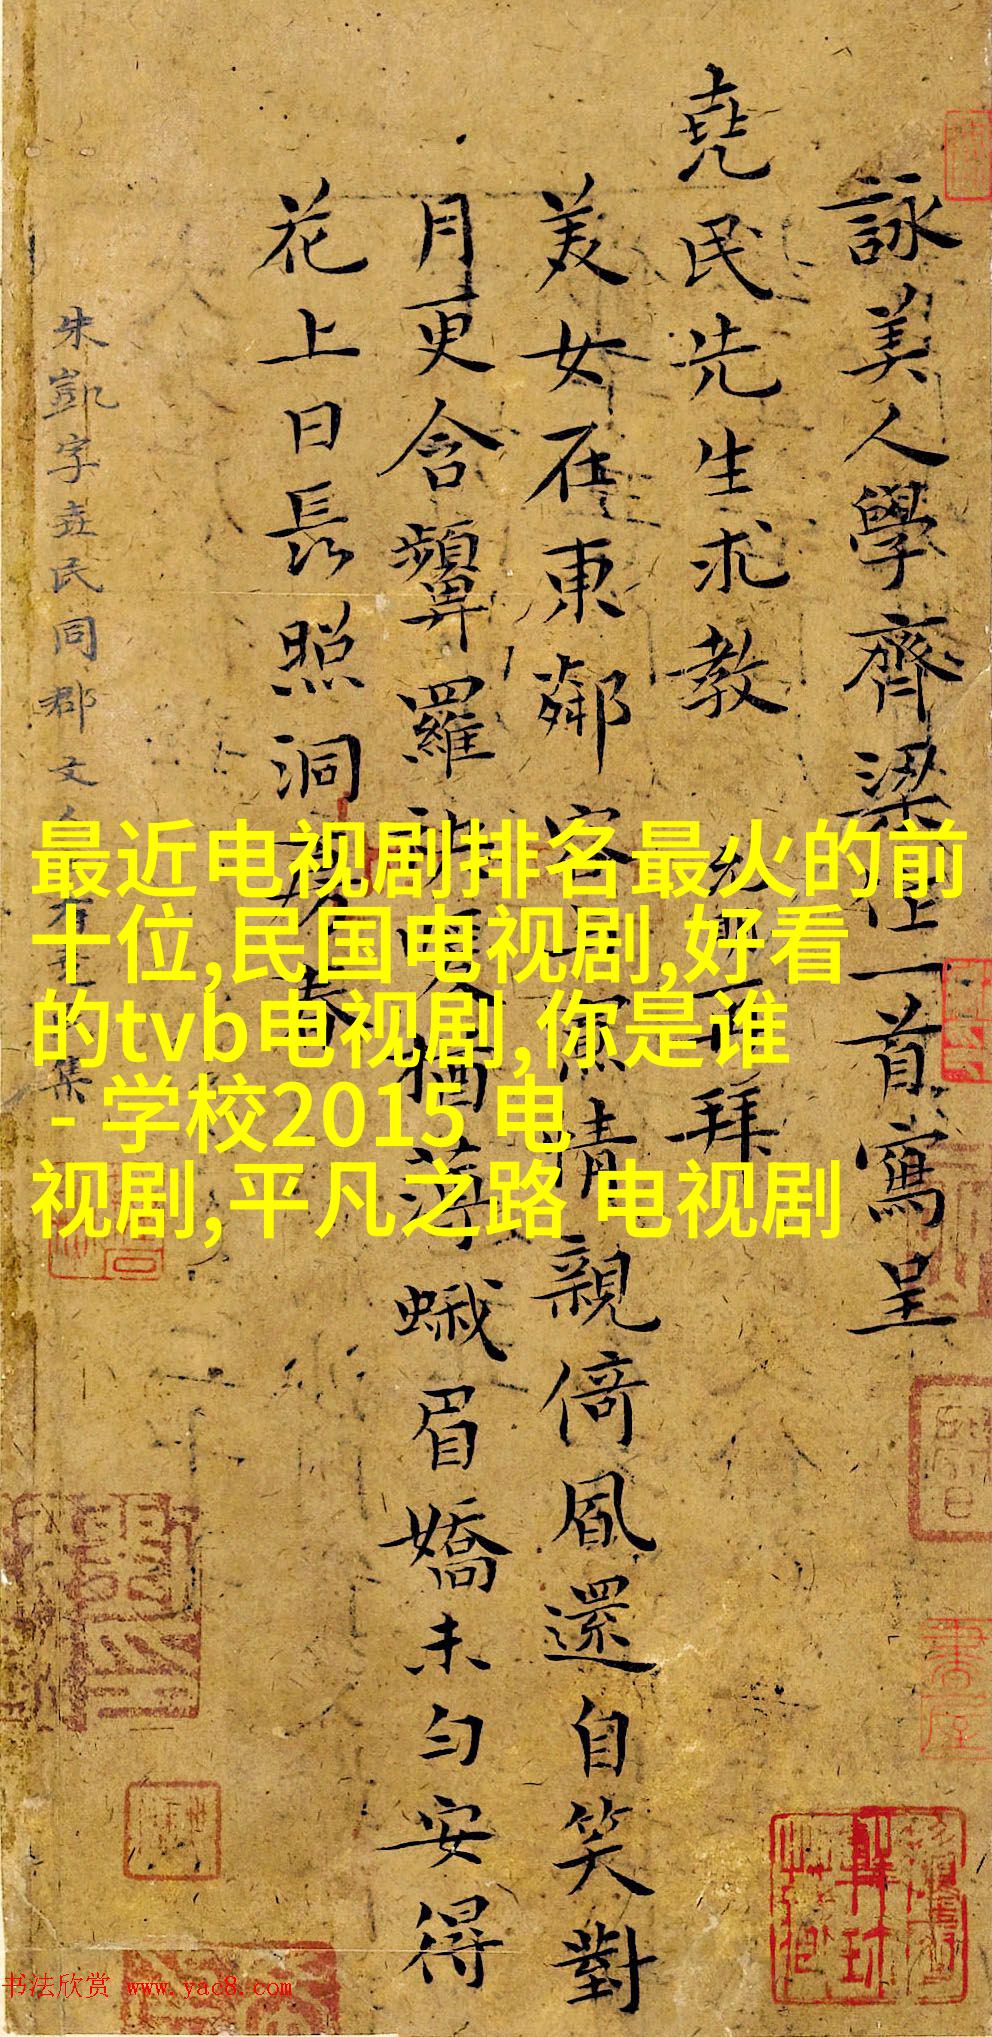 詠美人學齊梁體一首寫呈
堯民先生求教
再拜
美女在東鄰
情親倚風還自笑對
月更含顰羅
猶薄蛾眉嬌未勻安得
花上日長照洞房春
朱凱字堯民同郡文人有
集
最近电视剧排名最火的前
十位,民国电视剧,好看
的tvb电视剧,你是谁
- 学校2015 电
视剧,平凡之路 电视剧
书法欣赏 www.yac8.com